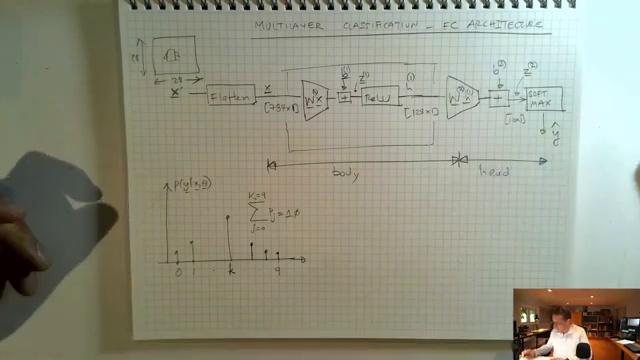 MULTILAYER CLASSIFICATION - FC ARCHITECTURE
28
28
x' Flatten x [784x1] W⁽¹⁾x b⁽¹⁾ + z⁽¹⁾ ReLU h⁽¹⁾ [128x1] W⁽²⁾h⁽¹⁾ b⁽²⁾ + z⁽²⁾ [10x1] SOFT MAX ŷ
body head
p(y|x,θ)
K=9
∑ pj = 1.0
j=0
0 1 k 9